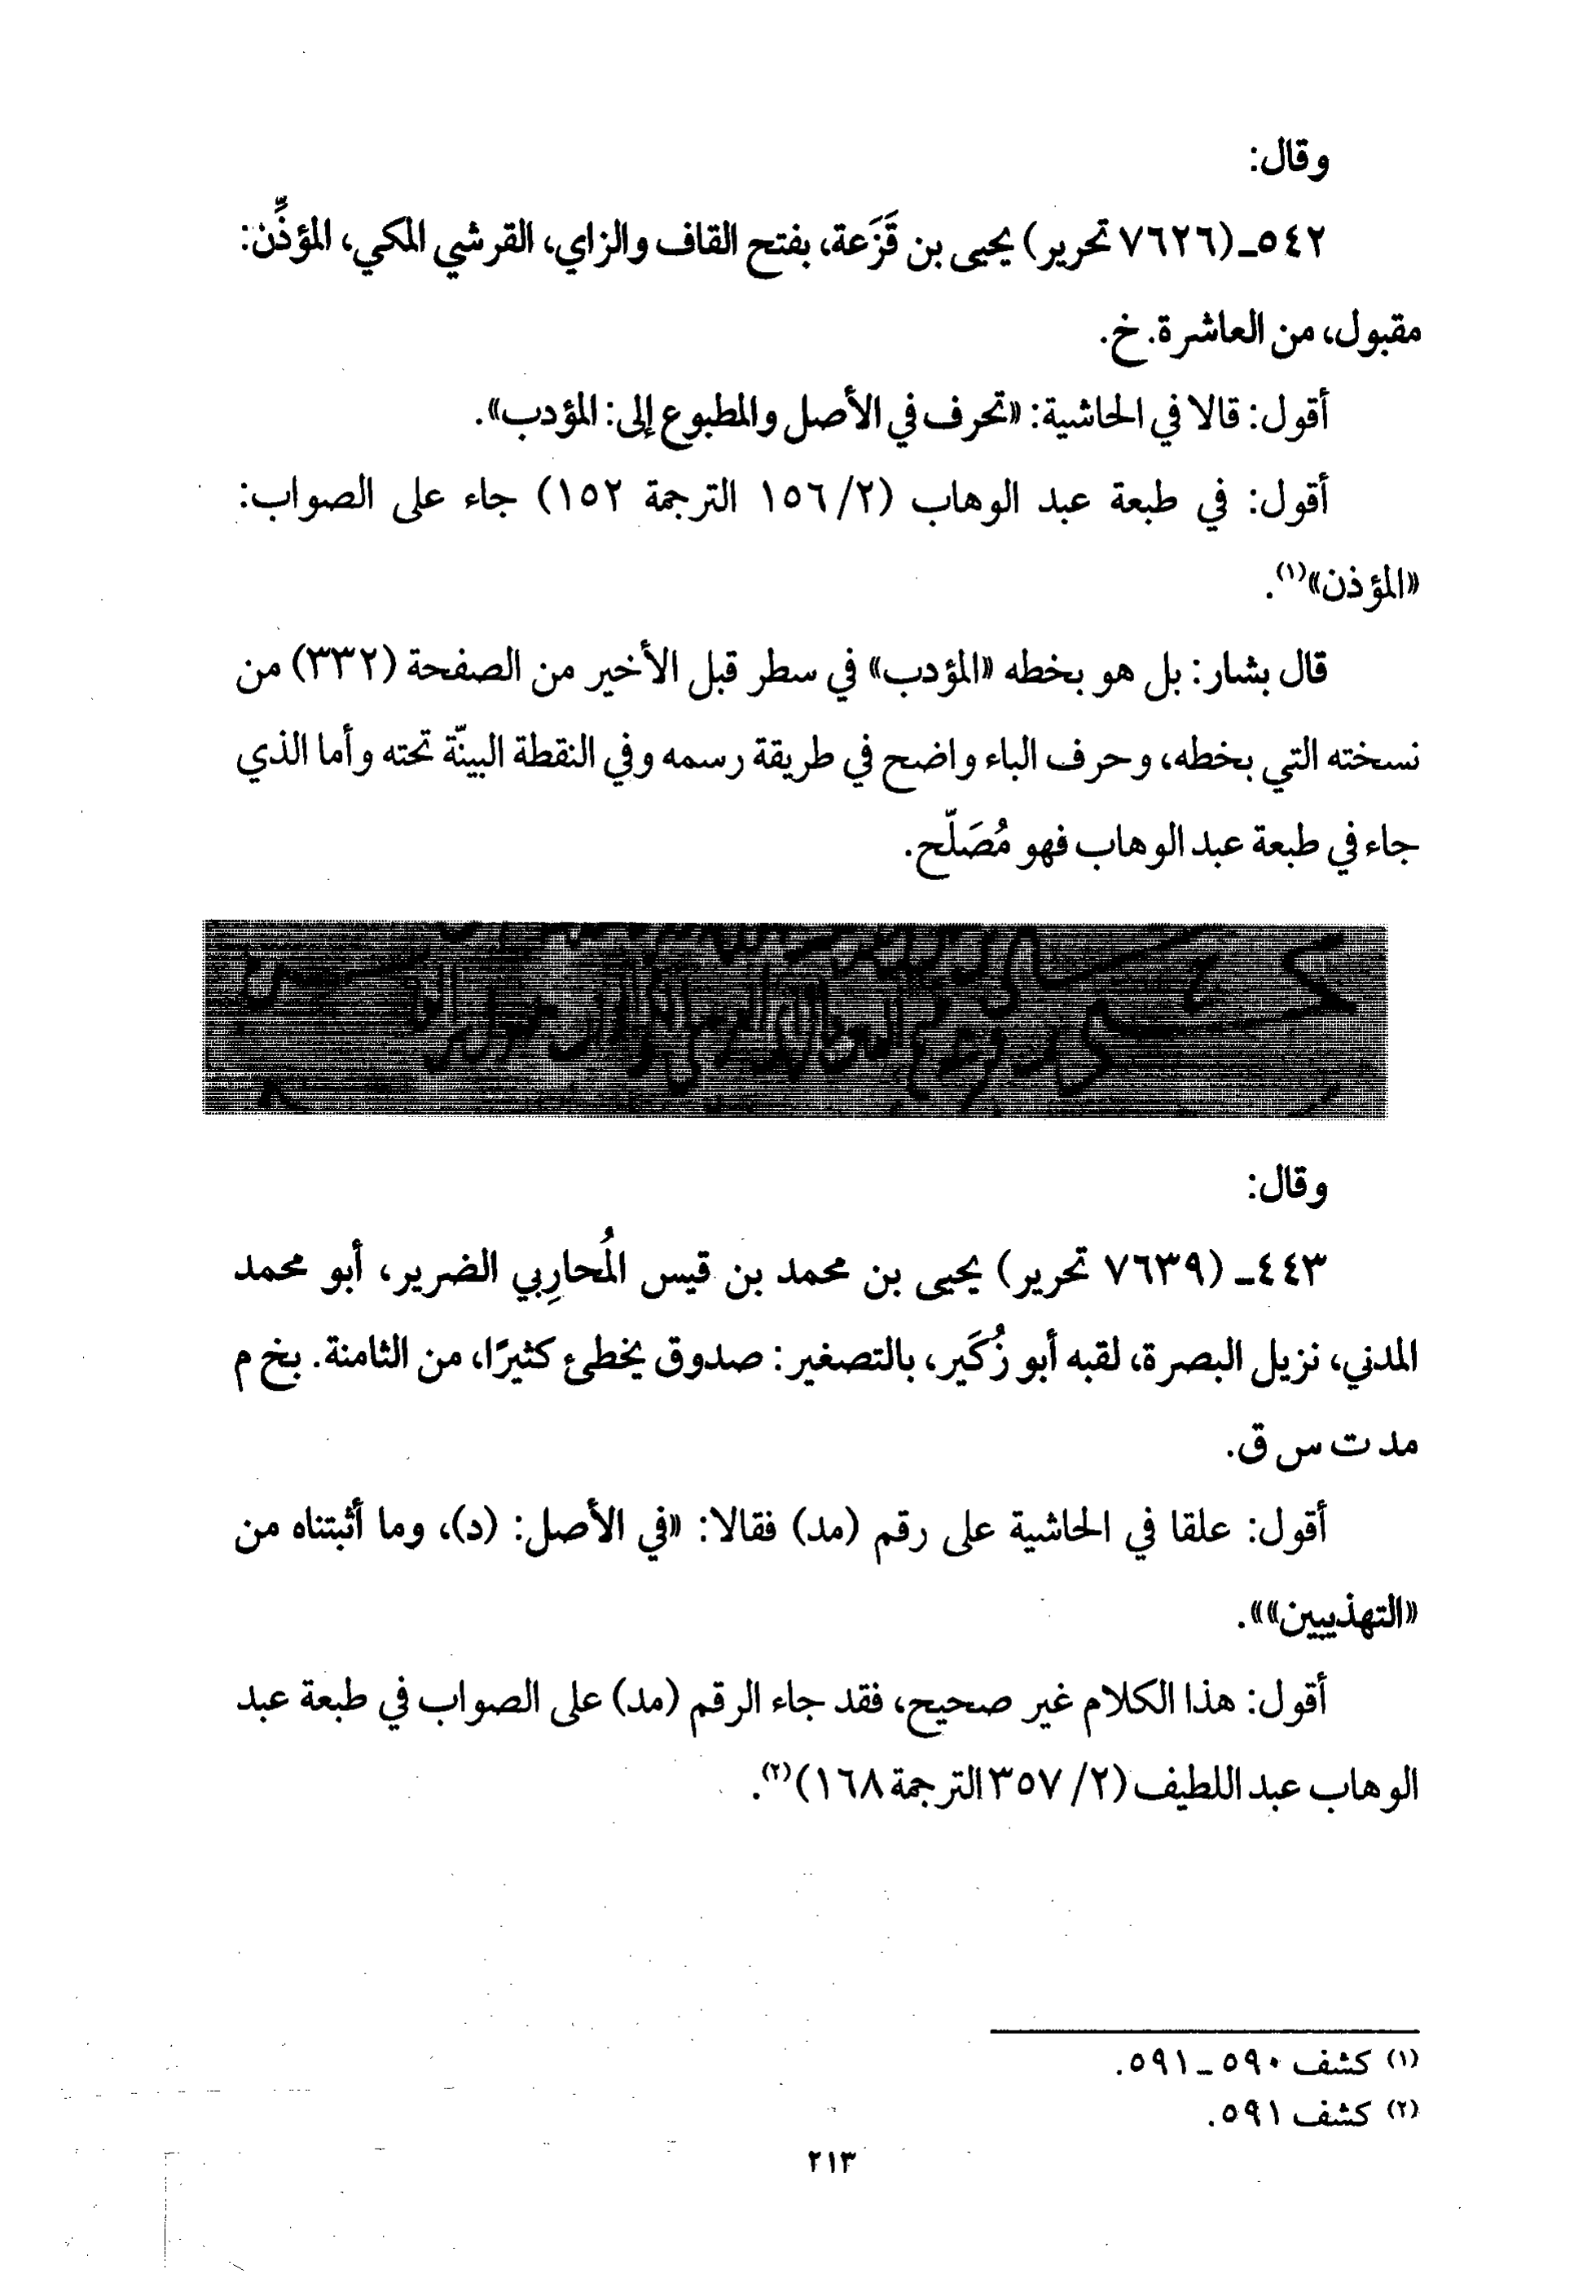 وقال:
٥٤٢ـ (٧٦٢٦ تحرير) يحيى بن قَزَعة، بفتح القاف والزاي، القرشي المكي، المؤذِّن:
مقبول، من العاشرة. خ.
أقول: قالا في الحاشية: «تحرف في الأصل والمطبوع إلى: المؤدب».
أقول: في طبعة عبد الوهاب (٢/ ١٥٦ الترجمة ١٥٢) جاء على الصواب:
«المؤذن»(١).
قال بشار: بل هو بخطه «المؤدب» في سطر قبل الأخير من الصفحة (٣٣٢) من
نسخته التي بخطه، وحرف الباء واضح في طريقة رسمه وفي النقطة البينّة تحته وأما الذي
جاء في طبعة عبد الوهاب فهو مُصَلّح.
وقال:
٤٤٣ـ (٧٦٣٩ تحرير) يحيى بن محمد بن قيس المُحارِبي الضرير، أبو محمد
المدني، نزيل البصرة، لقبه أبو زُكَير، بالتصغير: صدوق يخطئ كثيرًا، من الثامنة. بخ م
مد ت س ق.
أقول: علقا في الحاشية على رقم (مد) فقالا: «في الأصل: (د)، وما أثبتناه من
«التهذيبين»».
أقول: هذا الكلام غير صحيح، فقد جاء الرقم (مد) على الصواب في طبعة عبد
الوهاب عبد اللطيف (٢/ ٣٥٧ الترجمة ١٦٨)(٢).
(١) كشف ٥٩٠ ـ ٥٩١.
(٢) كشف ٥٩١.
٢١٣